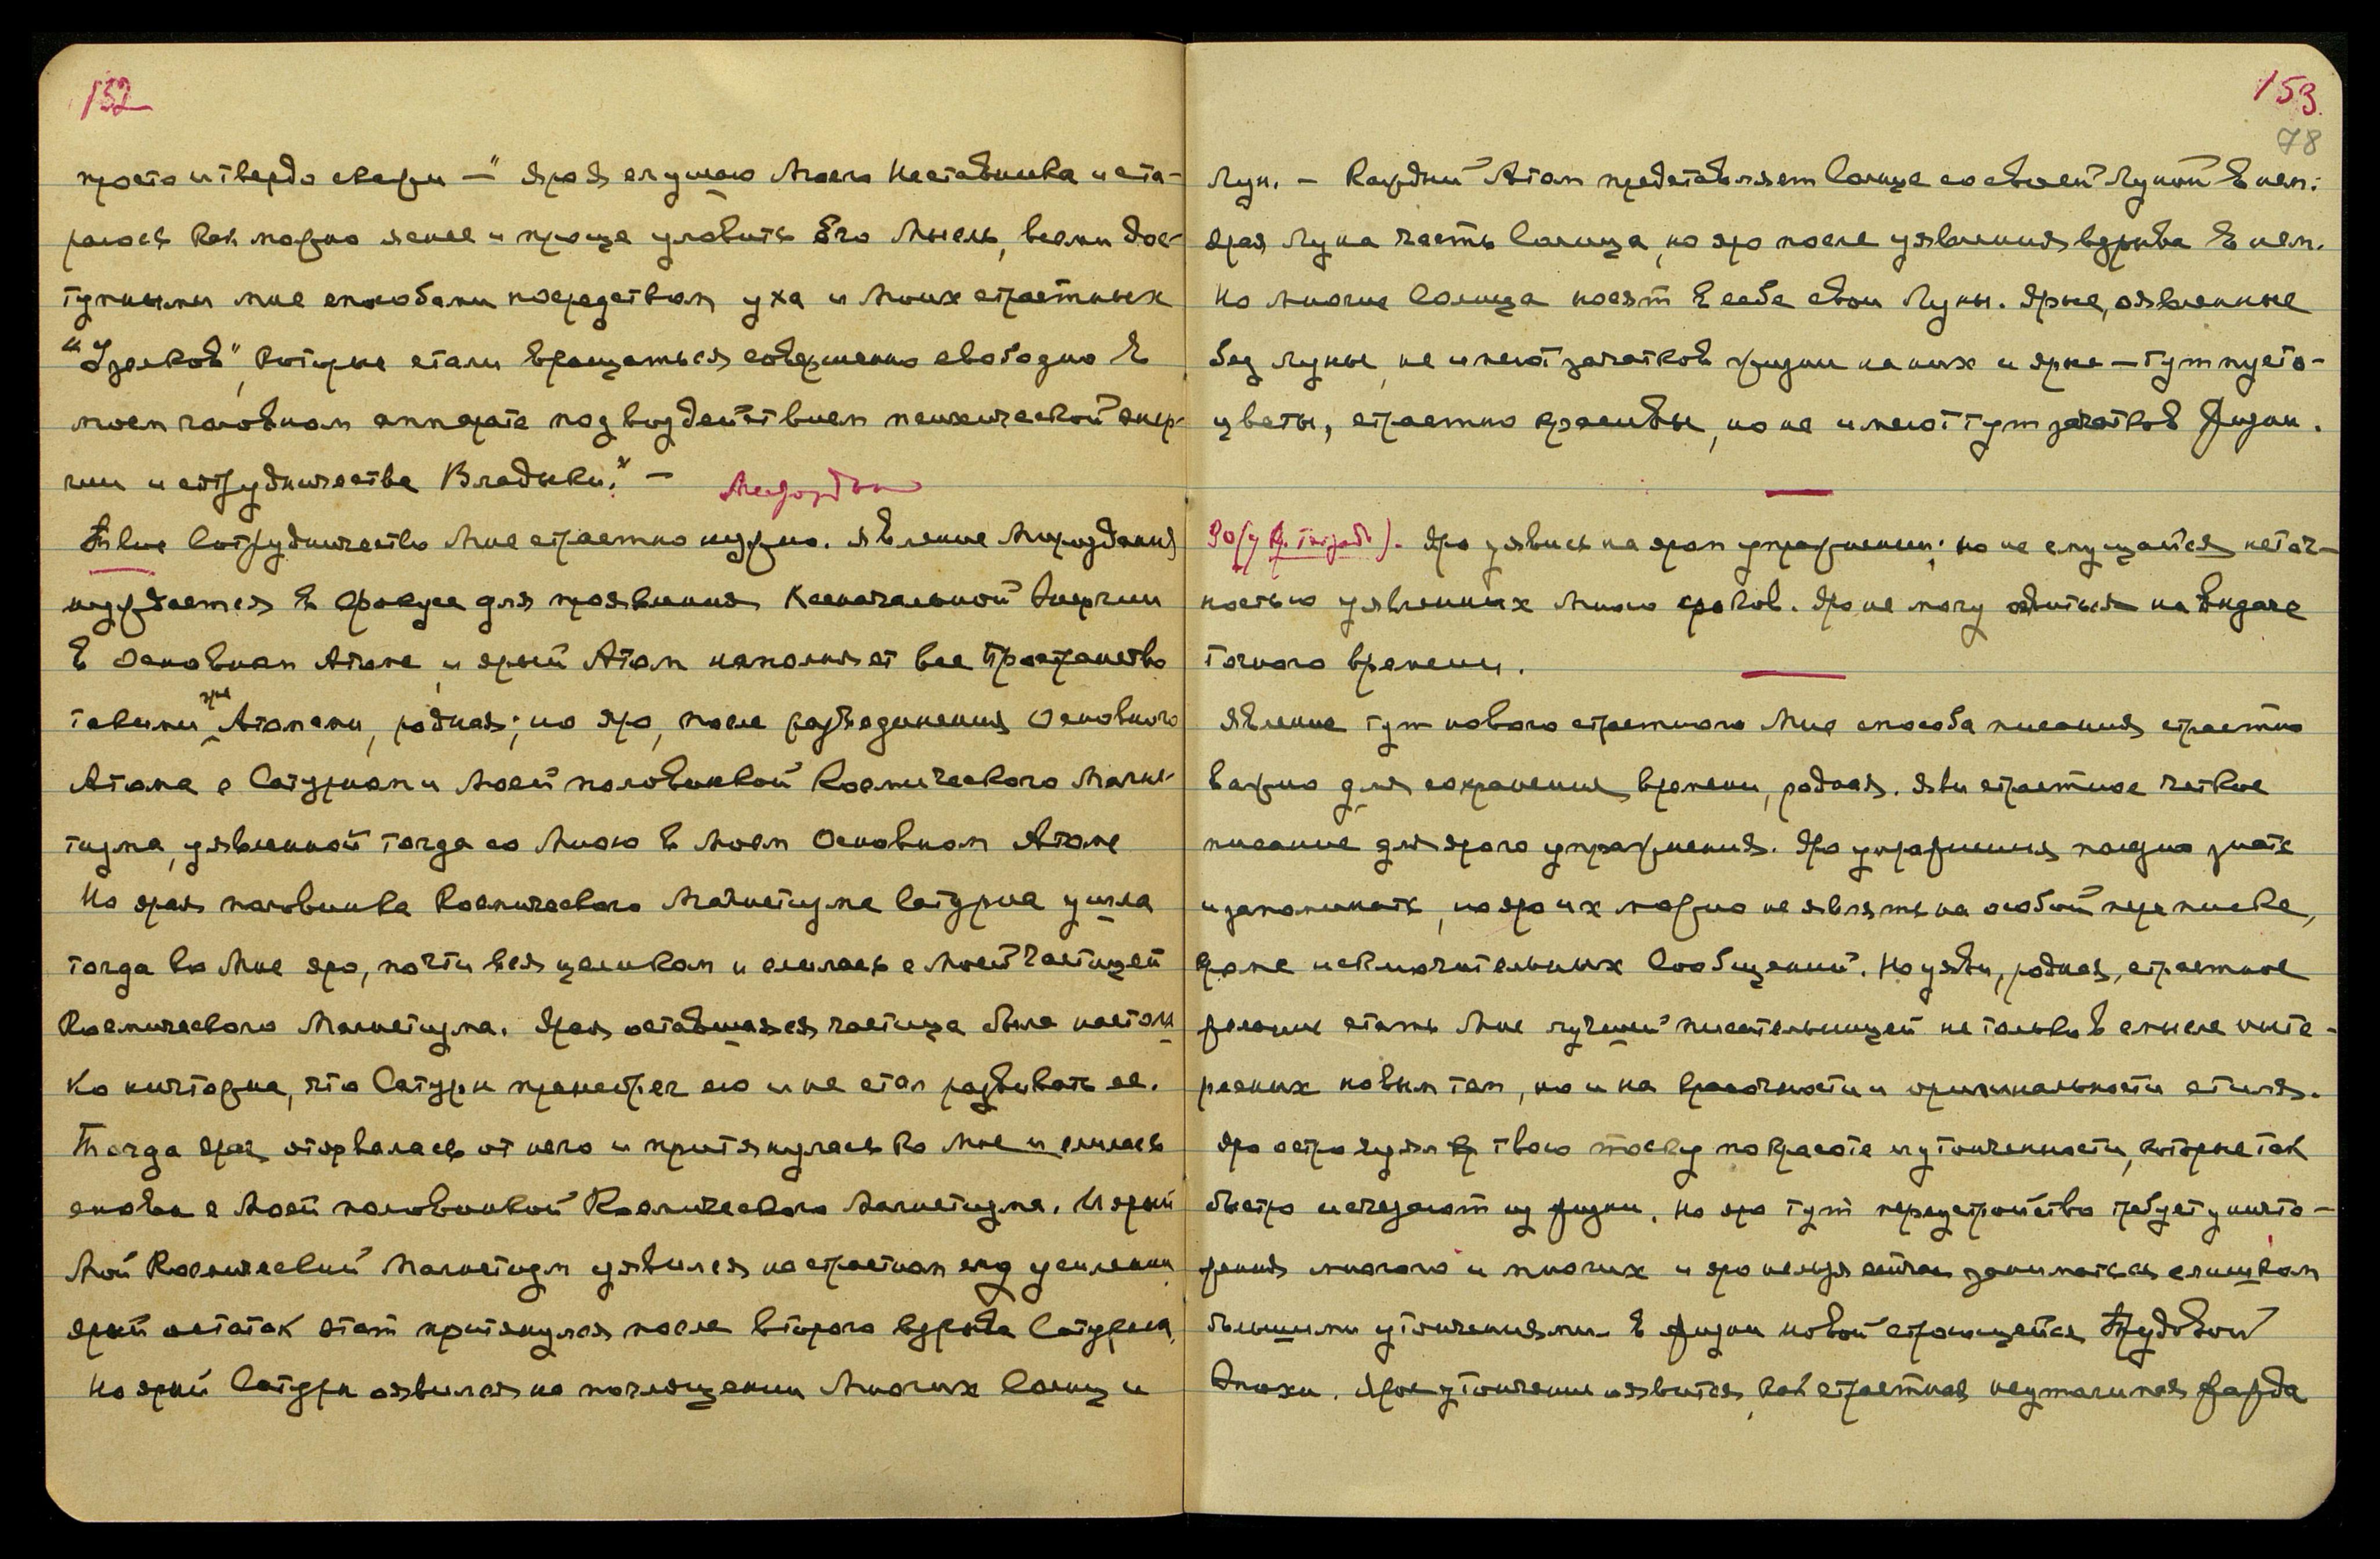 152
просто и твердо скажи — "Яро я слушаю Моего Наставника и ста-
раюсь как можно яснее и проще уловить Его Мысль, всеми дос-
тупными мне способами посредством уха и Моих страстных
"Узелков", которые стали вращаться совершенно свободно в
моем головном аппарате под воздействием психической энер-
гии и сотрудничества Владыки." —
Твое Сотрудничество Мне страстно нужно. Явление Мироздания
нуждается в фокусе для проявления Изначальной Энергии
в Основном Атоме, и ярый Атом наполняет все Пространство
такими же Атомами, родная; но яро, после разъединения Основного
Атома с Сатурном и Моей половинкой Космического Магне-
тизма, уявленной тогда со Мною в Моем Основном Атоме
Но ярая половинка Космического Магнетизма Сатурна ушла
тогда ко Мне яро, почти вся целиком и слилась с Моей Частицей
Космического Магнетизма. Ярая оставшаяся частица была настоль
ко ничтожна, что Сатурн пренебрег ею и не стал развивать ее.
Тогда ярая оторвалась от него и притянулась ко Мне и слилась
снова с Моей половинкой Космического Магнетизма. И ярый
Мой Космический Магнетизм уявился на страстном ему усилении
ярый остаток этот притянулся после второго взрыва Сатурна,
Но ярый Сатурн оявился на поглощении Многих Солнц и
153
78
Лун. — Каждый Атом представляет Солнце со своей Луной в нем.
Ярая Луна часть Солнца, но яро после уявления взрыва в нем.
Но многие Солнца носят в себе свои Луны. Ярые, оявленные
без Луны, не имеют зачатков жизни на них и ярые — тут пусто-
цветы, страстно красивы, но не имеют тут зачатков жизни.
Яро уявись на яром упражнении; но не смущайся неточ-
ностью уявленных Мною сроков. Яро не могу явиться на выдаче
точного времени.
Явление тут нового страстного Мне способа писания страстно
важно для сохранения времени, родная. Яви страстное четкое
писание для ярого упражнения. Яро упражнения полезно знать
и запоминать, но яро их можно не являть на особой переписке,
кроме исключительных Сообщений. Но уяви, родная, страстное
желание стать Мне лучшей писательницей не только в смысле инте-
ресных новых тем, но и на красочности и оригинальности стиля.
Яро остро твою тоску по красоте и утонченности, которые так
быстро исчезают из жизни. Но яро тут переустройство требует уничто-
жения многого и многих и яро нельзя сейчас заниматься слишком
большими утончениями в жизни новой строющейся Трудовой
Эпохи. Ярое утончение оявится, как страстная неутолимая жажда